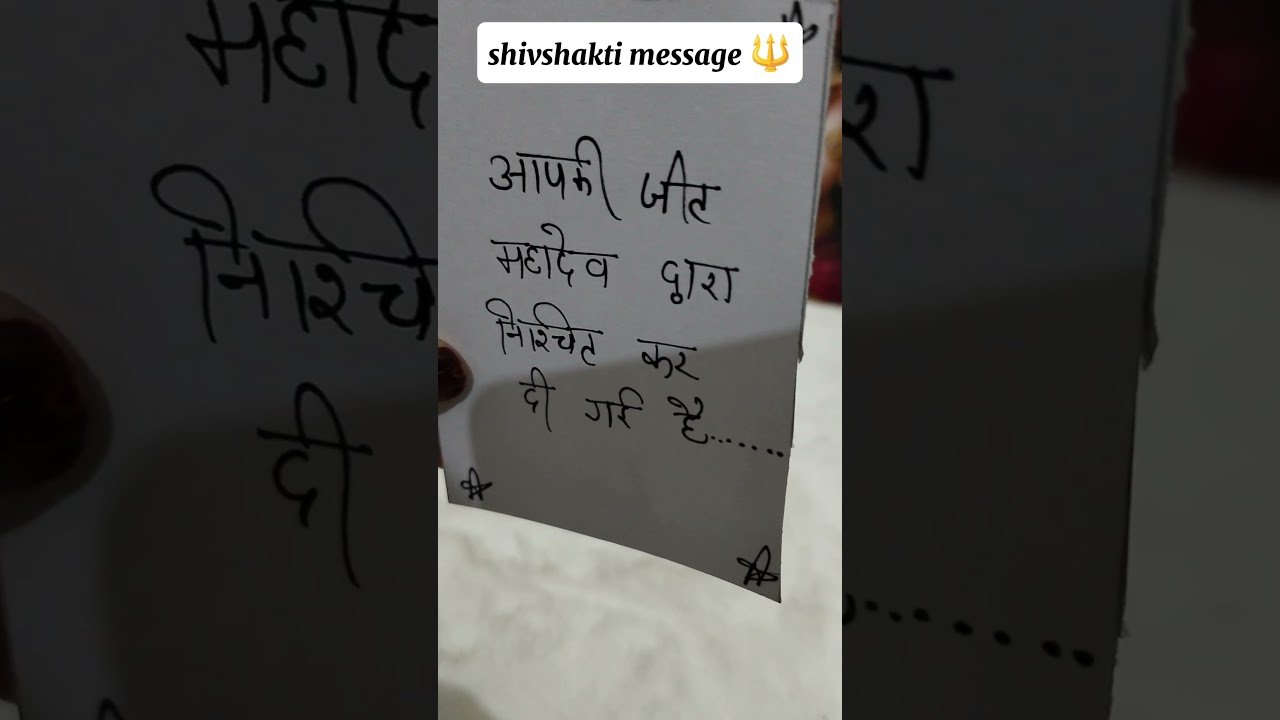 shivshakti message 🔱
आपकी जीत
महादेव द्वारा
निश्चित कर
दी गई है.......